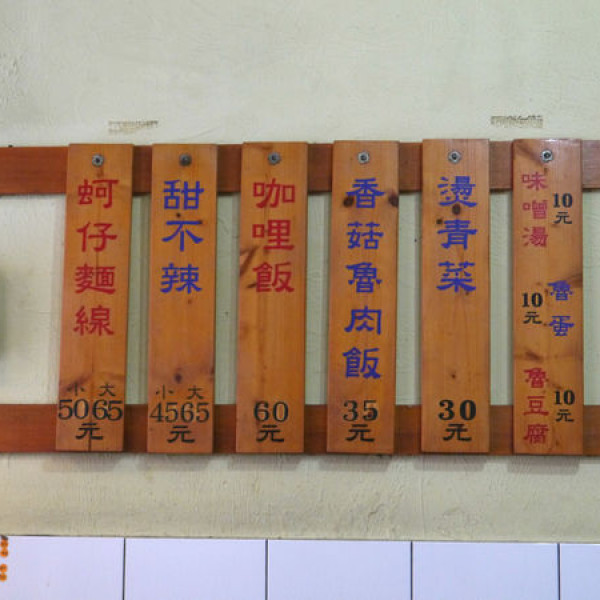 蚵仔麵線
小 大
50 65
元
甜不辣
小 大
45 65
元
咖哩飯
60
元
香菇魯肉飯
35
元
燙青菜
30
元
味噌湯
10
元
魯蛋
10
元
魯豆腐
10
元